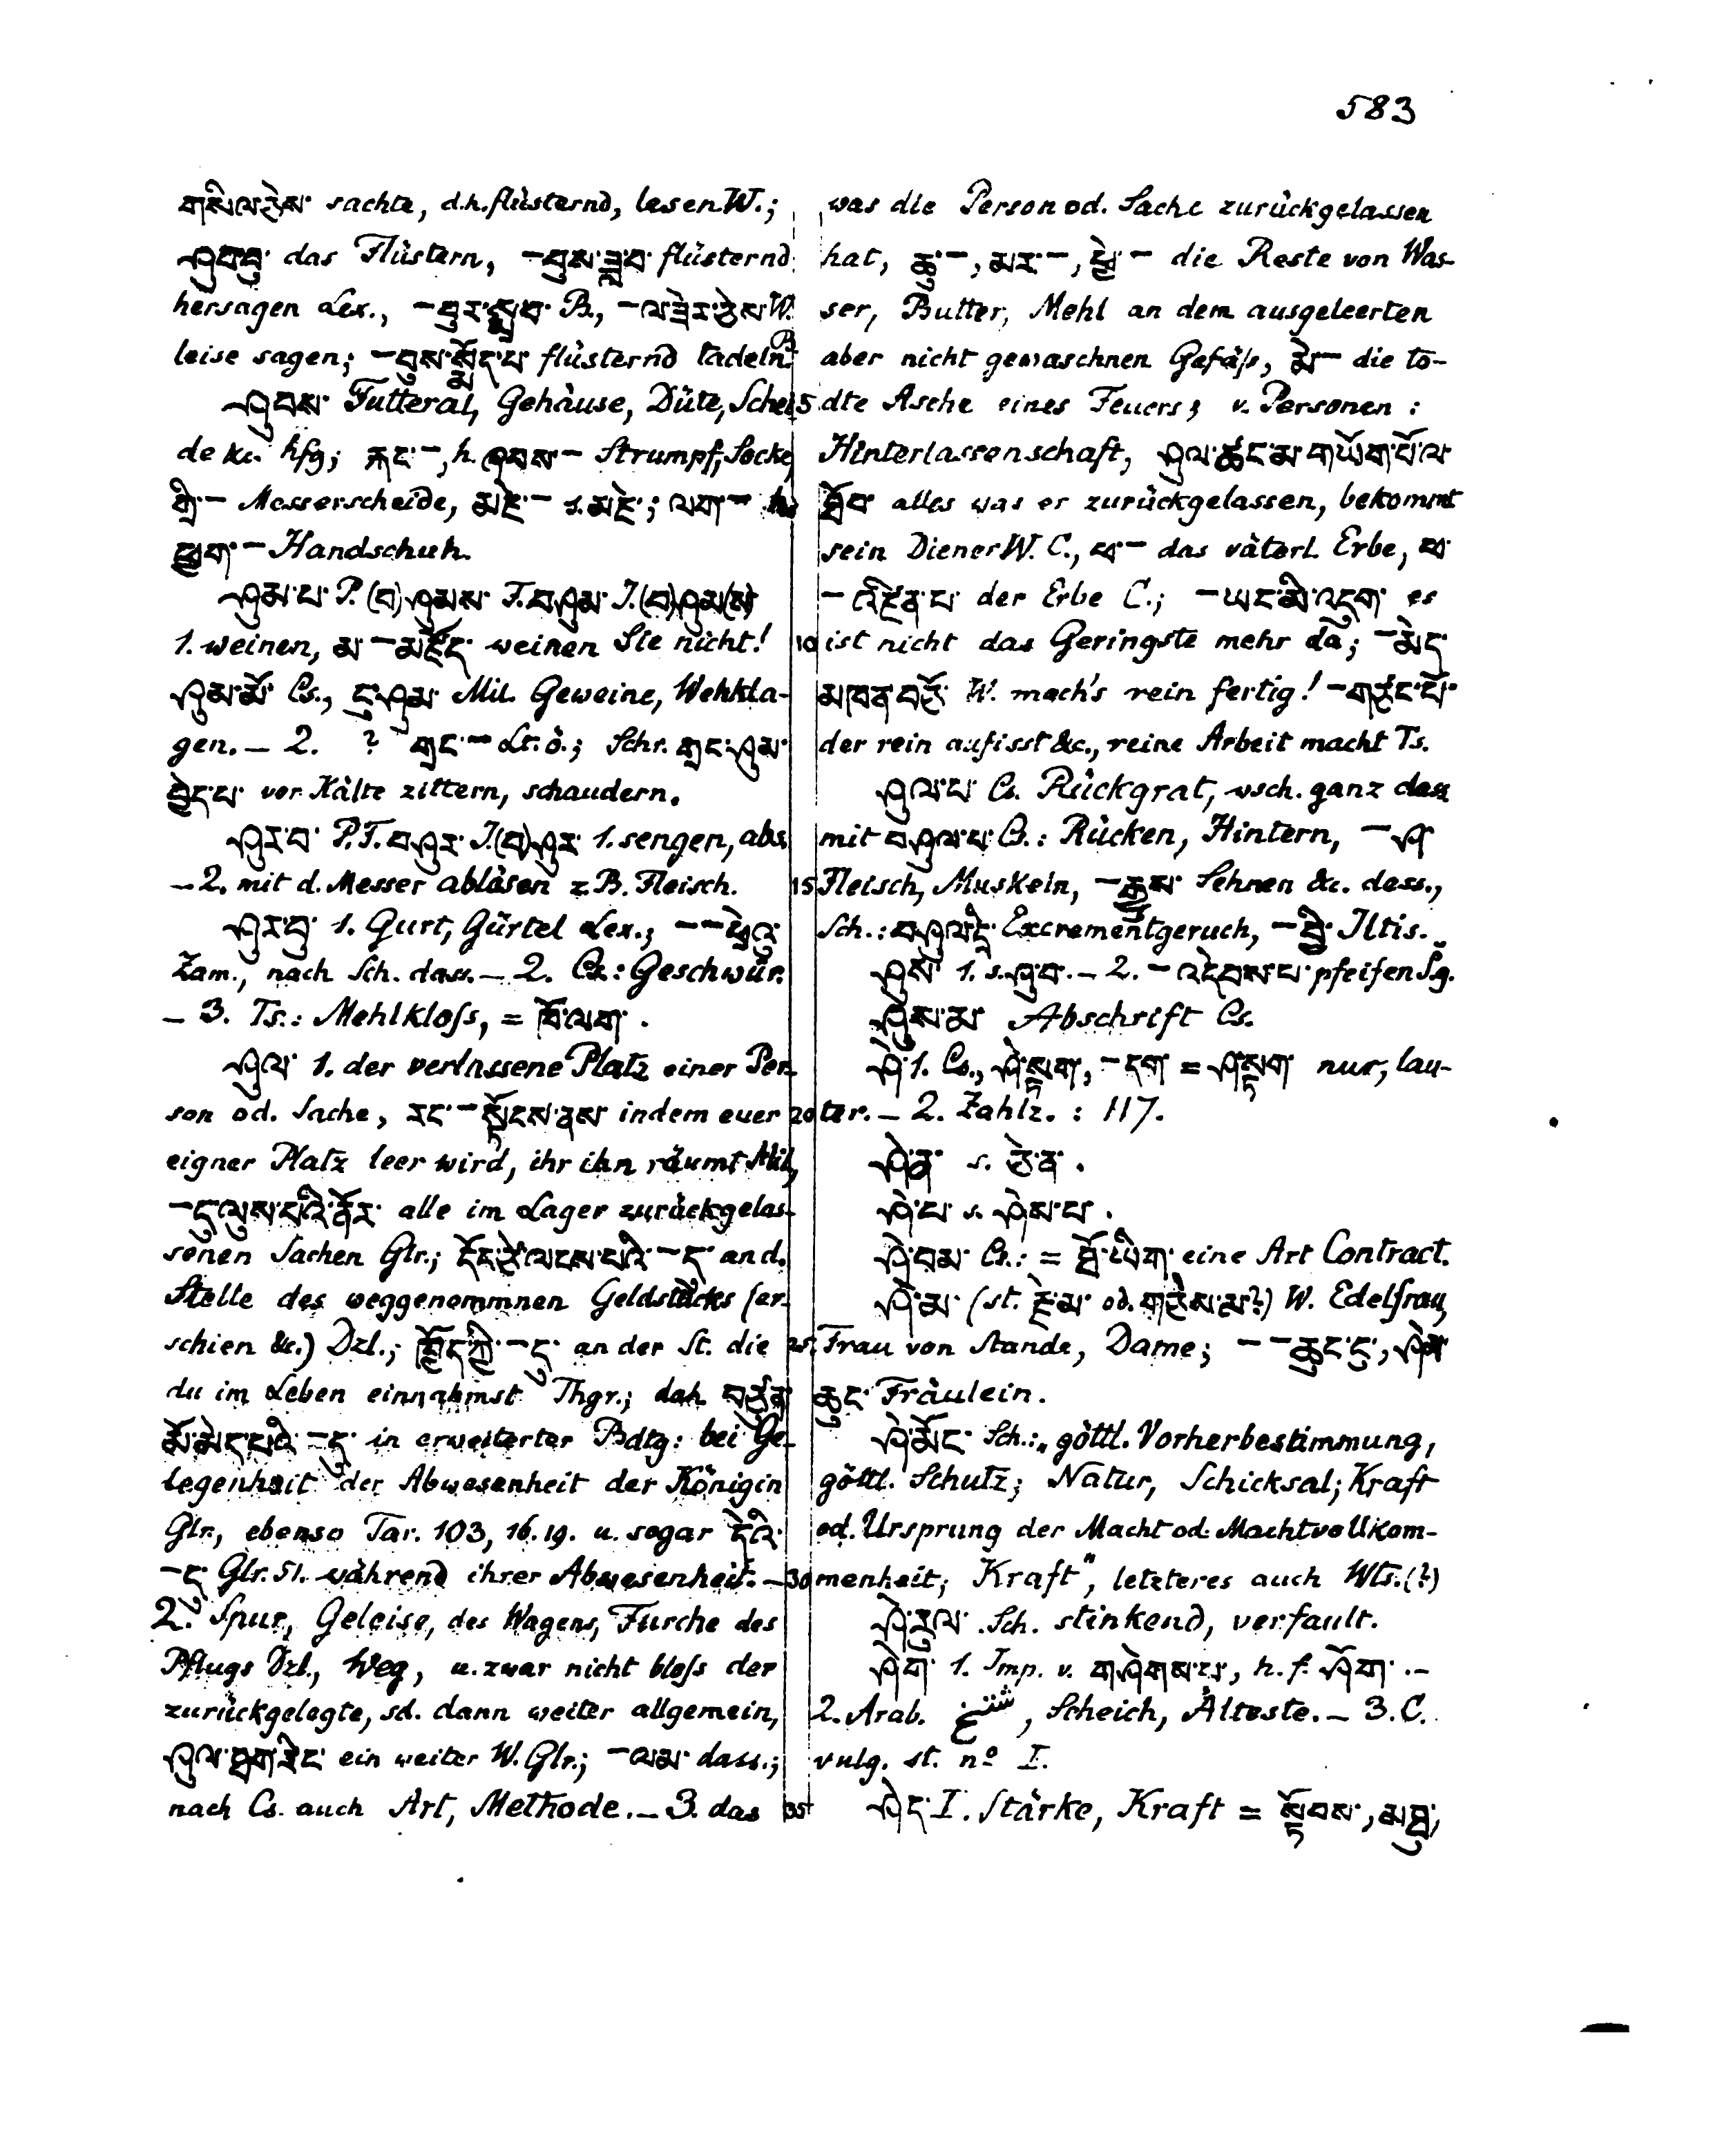 583
sachte, d.h. flüsternd, lesen W.;
ཤུབ་བུ་ das Flüstern, –བུས་ flüsternd
hersagen Lex., –བུར་སྨྲ་བ་ B., –ལ་ཟེར་ཅེས་ W.
leise sagen; –བུས་སྨོད་པ་ flüsternd tadeln B.
ཤུབས་ Futteral, Gehäuse, Düte, Schei-
de &c. hfg; རྐང་–, h. ཞབས–Strumpf, Socke,
གྲི་– Messerscheide, མཇེ་– s. མཇེ་; ལག་– h.
ཕྱག་–Handschuh.
ཤུམ་པ་ P. (བ)ཤུམས་ F. བཤུམ་ J. (བ)ཤུམ(ས)
1. weinen, མ་–མཛོད་ weinen Sie nicht!
ཤུམ་མོ་ Cs., ངུ་ཤུམ་ Mil. Geweine, Wehkla-
gen. – 2. ? གྲང་– Lt. ö.; Schr. གྲང་ཤུམ་
བྱེད་པ་ vor Kälte zittern, schaudern.
ཤུར་བ་ P. F. བཤུར་ J. (བ)ཤུར་ 1. sengen, abs.
– 2. mit d. Messer ablösen z. B. Fleisch.
ཤུར་བུ་ 1. Gurt, Gürtel Lex.; ––
Zam., nach Sch. dass. – 2. Cs.: Geschwür.
– 3. Ts.: Mehlkloss, =
ཤུལ་ 1. der verlassene Platz einer Per-
son od. Sache, རང་–སྟོངས་ནས་ indem euer
eigner Platz leer wird, ihr ihn räumt Mil.,
–དུ་ལུས་པའི་ནོར་ alle im Lager zurückgelas-
senen Sachen Glr.; དོང་ཙེ་ལངས་པའི་–ད་ an d.
Stelle des weggenommnen Geldstücks (er-
schien &c.) Dzl.; ཁྱོད་ཀྱི་–དུ་ an der St. die
du im Leben einnahmst Thgr.; dah. བཙུན་
མོ་མེད་པའི་–དུ་ in erweiterter Bdtg: bei Ge-
legenheit der Abwesenheit der Königin
Glr., ebenso Tar. 103, 16. 19. u. sogar དེའི་
–དུ་ Glr. 51. während ihrer Abwesenheit. –
2. Spur, Geleise, des Wagens, Furche des
Pflugs Dzl., Weg, u. zwar nicht bloss der
zurückgelegte, sd. dann weiter allgemein,
ཤུལ་ཐག་རིང་ ein weiter W. Glr.; –ལམ་ dass.;
nach Cs. auch Art, Methode. – 3. das
was die Person od. Sache zurückgelassen
hat, ཆུ་–, མར་–, ཕྱེ་– die Reste von Was-
ser, Butter, Mehl an dem ausgeleerten
aber nicht gewaschnen Gefäss, མེ་– die to-
5 dte Asche eines Feuers; v. Personen:
Hinterlassenschaft, ཤུལ་ཚང་མ་གཡོག་པོ་ལ་
ཐོབ་ alles was er zurückgelassen, bekommt
sein Diener W. C., ཕ་– das väterl. Erbe, ཕ་
–འཛིན་པ་ der Erbe C.; –ཡང་མི་འདུག་ es
10 ist nicht das Geringste mehr da; –མེད་
མཁན་བཅོ་ W. mach's rein fertig! –གཙང་པོ་
der rein aufisst &c., reine Arbeit macht Ts.
ཤུལ་པ་ Cs. Rückgrat, wsch. ganz dass.
mit བཤུལ་པ་ B.: Rücken, Hintern, –ཤ་
15 Fleisch, Muskeln, –རྒྱུས་ Sehnen &c. dess.,
Sch.: བཤུལ་དྲི་ Excrementgeruch, –བྱི་ Iltis.
ཤུས་ 1. s. ཤུབ་. – 2. –འདེབས་པ་ pfeifen Sg.
ཤུས་མ་ Abschrift Cs.
ཤེ་ 1. Cs., ཤེ་སྟག་, –དག་ = ཤ་སྟག་ nur, lau-
20 ter. – 2. Zahlz.: 117.
ཤེ་ན་ s. ཅེ་ན་.
ཤེ་པ་ s. ཤེས་པ་.
ཤེ་བམ་ Cs.: = གྲོ་ཡིག་ eine Art Contract.
ཤེ་མ་ (st. རྗེ་མ་ od. གཅེས་མ་?) W. Edelfrau,
25 Frau von Stande, Dame; ––ཆུང་ངུ་, ཤེམ་
ཆུང་ Fräulein.
ཤེ་མོང་ Sch.: „göttl. Vorherbestimmung,
göttl. Schutz; Natur, Schicksal; Kraft
od. Ursprung der Macht od. Machtvollkom-
30 menheit; Kraft", letzteres auch Wts.(?)
ཤེ་རུལ་ Sch. stinkend, verfault.
ཤེག་ 1. Imp. v. གཤེགས་པ་, h. f. ཤོག་. –
2. Arab. شيخ, Scheich, Älteste. – 3. C.
vulg. st. nº I.
35 ཤེད་ I. Stärke, Kraft = སྟོབས་, མཐུ་,